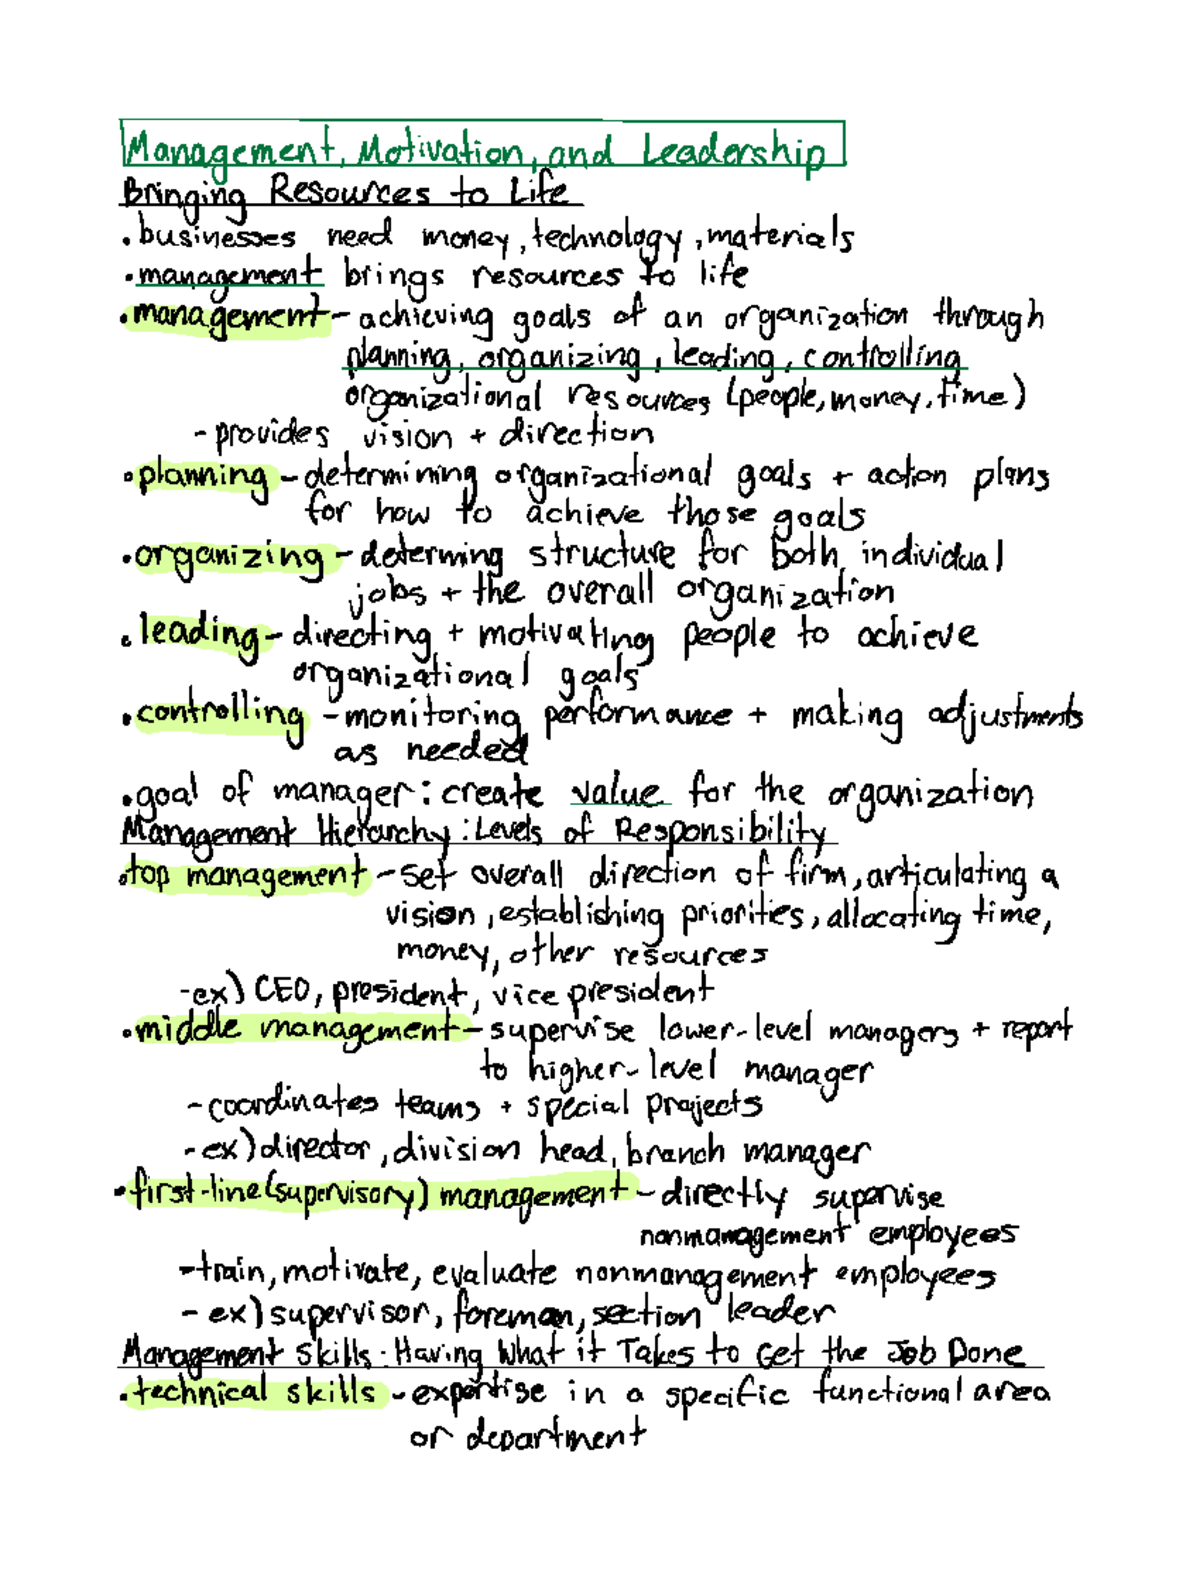 Management, Motivation, and Leadership
Bringing Resources to Life
• businesses need money, technology, materials
• management brings resources to life
• management - achieving goals of an organization through
planning, organizing, leading, controlling
organizational resources (people, money, time)
- provides vision + direction
• planning - determining organizational goals + action plans
for how to achieve those goals
• organizing - determing structure for both individual
jobs + the overall organization
• leading - directing + motivating people to achieve
organizational goals
• controlling - monitoring performance + making adjustments
as needed
• goal of manager: create value for the organization
Management Hierarchy: Levels of Responsibility
• top management - set overall direction of firm, articulating a
vision, establishing priorities, allocating time,
money, other resources
- ex) CEO, president, vice president
• middle management - supervise lower-level managers + report
to higher-level manager
- coordinates teams + special projects
- ex) director, division head, branch manager
• first-line (supervisory) management - directly supervise
nonmanagement employees
- train, motivate, evaluate nonmanagement employees
- ex) supervisor, foreman, section leader
Management Skills: Having What it Takes to Get the Job Done
• technical skills - expertise in a specific functional area
or department